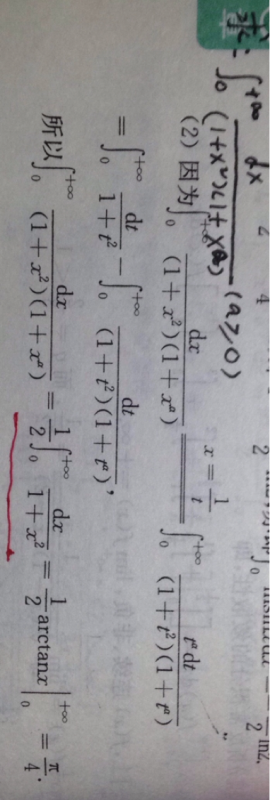 章
求: ∫₀^{+∞} dx / ((1+x²)(1+x^a)) (a≥0)
(2) 因为∫₀^{+∞} dx / ((1+x²)(1+xᵃ)) ══ x = 1/t ══ ∫₀^{+∞} tᵃdt / ((1+t²)(1+tᵃ))
= ∫₀^{+∞} dt / (1+t²) − ∫₀^{+∞} dt / ((1+t²)(1+tᵃ)),
所以∫₀^{+∞} dx / ((1+x²)(1+xᵃ)) = 1/2 ∫₀^{+∞} dx / (1+x²) = 1/2 arctanx |₀^{+∞} = π/4.